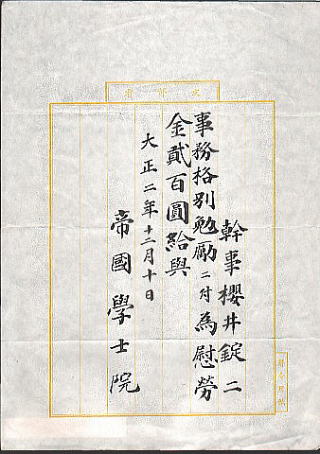 幹事櫻井錠二
事務格別勉勵ニ付為慰勞
金貳百圓給與
大正二年十二月十日
帝國學士院